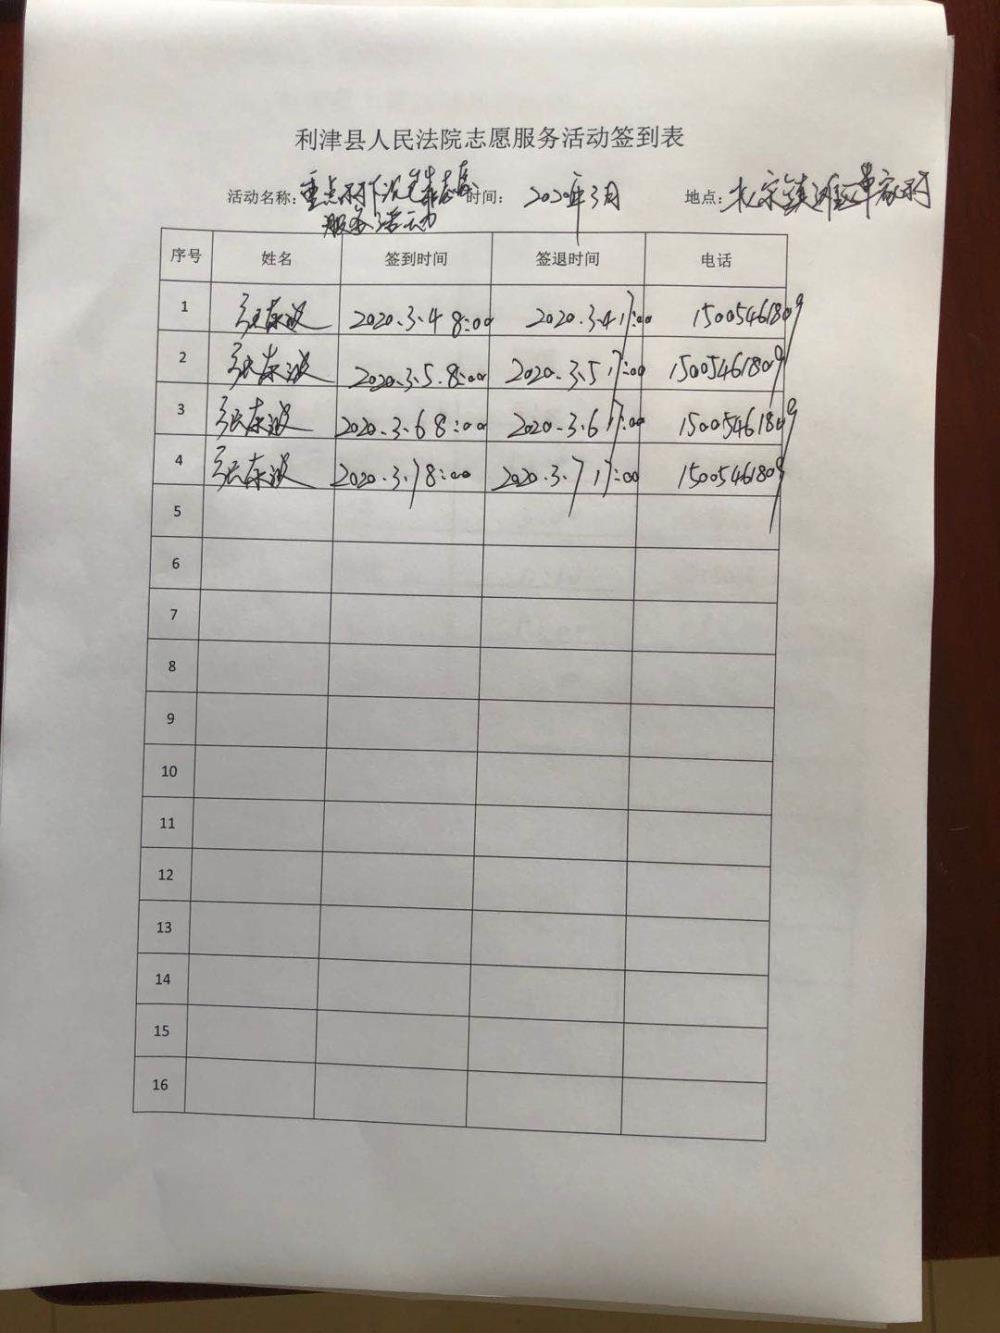 利津县人民法院志愿服务活动签到表
活动名称：重点村下沉党员志愿 时间： 2020年3月 地点：北宋镇 家村
服务活动
序号 姓名 签到时间 签退时间 电话
1 张东波 2020.3.4 8:00 2020.3.4 17:00 15005461809
2 张东波 2020.3.5.8:00 2020.3.5 17:00 15005461809
3 张东波 2020.3.6 8:00 2020.3.6 17:00 15005461809
4 张东波 2020.3.7 8:00 2020.3.7 17:00 15005461809
5
6
7
8
9
10
11
12
13
14
15
16